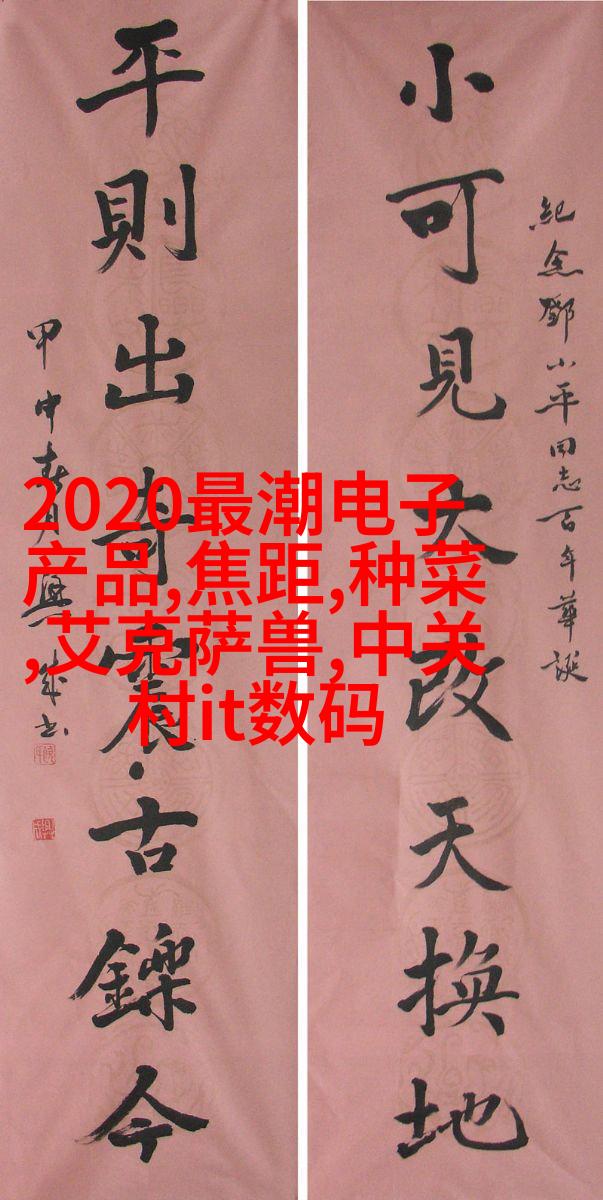 紀念鄧小平同志百年華誕
小可見大改天換地
平則出奇震古鑠今
甲申春月興成书
2020最潮电子
产品,焦距,种菜
,艾克萨兽,中关
村it数码